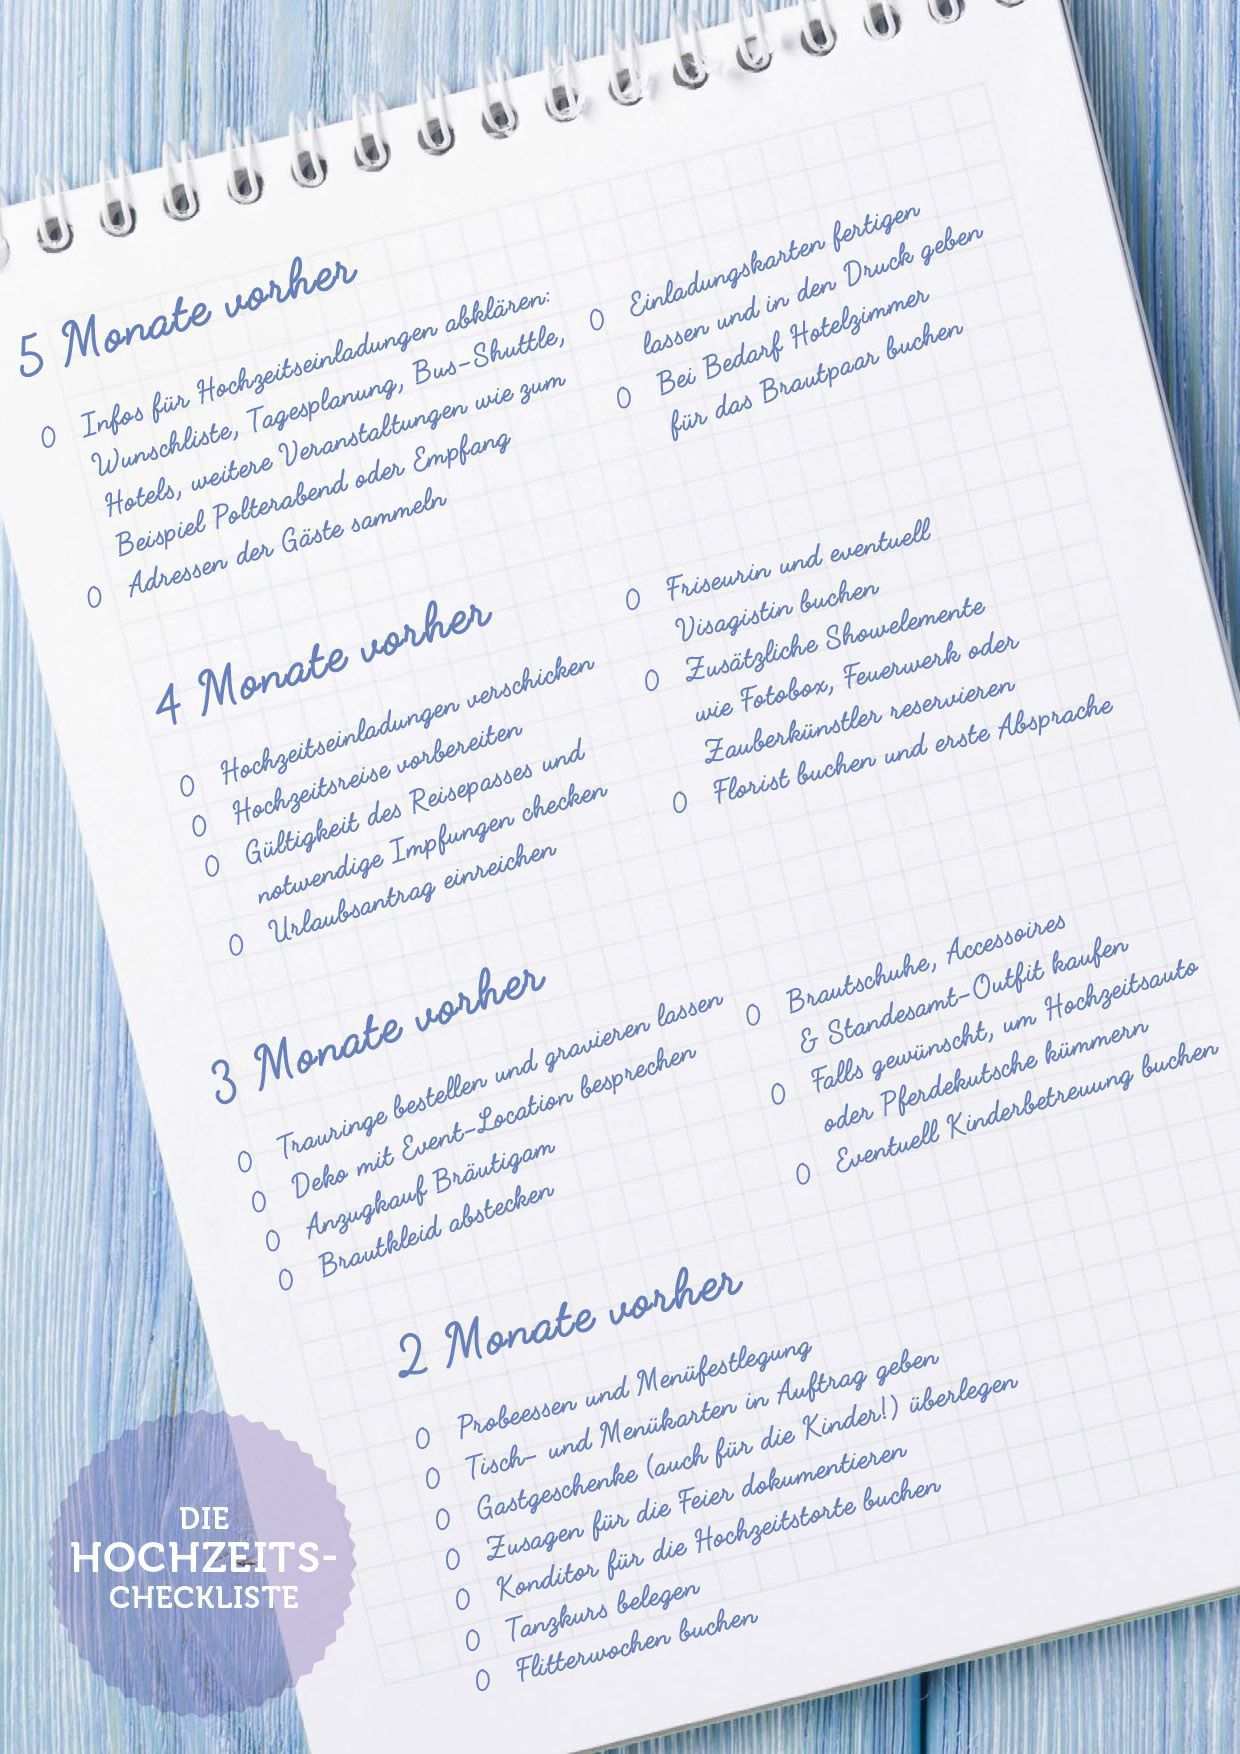 5 Monate vorher
O Infos für Hochzeitseinladungen abklären:
Wunschliste, Tagesplanung, Bus-Shuttle,
Hotels, weitere Veranstaltungen wie zum
Beispiel Polterabend oder Empfang
O Adressen der Gäste sammeln
O Einladungskarten fertigen
lassen und in den Druck geben
O Bei Bedarf Hotelzimmer
für das Brautpaar buchen
4 Monate vorher
O Hochzeitseinladungen verschicken
O Hochzeitsreise vorbereiten
O Gültigkeit des Reisepasses und
notwendige Impfungen checken
O Urlaubsantrag einreichen
O Friseurin und eventuell
Visagistin buchen
O Zusätzliche Showelemente
wie Fotobox, Feuerwerk oder
Zauberkünstler reservieren
O Florist buchen und erste Absprache
3 Monate vorher
O Trauringe bestellen und gravieren lassen
O Deko mit Event-Location besprechen
O Anzugkauf Bräutigam
O Brautkleid abstecken
O Brautschuhe, Accessoires
& Standesamt-Outfit kaufen
O Falls gewünscht, um Hochzeitsauto
oder Pferdekutsche kümmern
O Eventuell Kinderbetreuung buchen
2 Monate vorher
O Probeessen und Menüfestlegung
O Tisch- und Menükarten in Auftrag geben
O Gastgeschenke (auch für die Kinder!) überlegen
O Zusagen für die Feier dokumentieren
O Konditor für die Hochzeitstorte buchen
O Tanzkurs belegen
O Flitterwochen buchen
DIE
HOCHZEITS-
CHECKLISTE